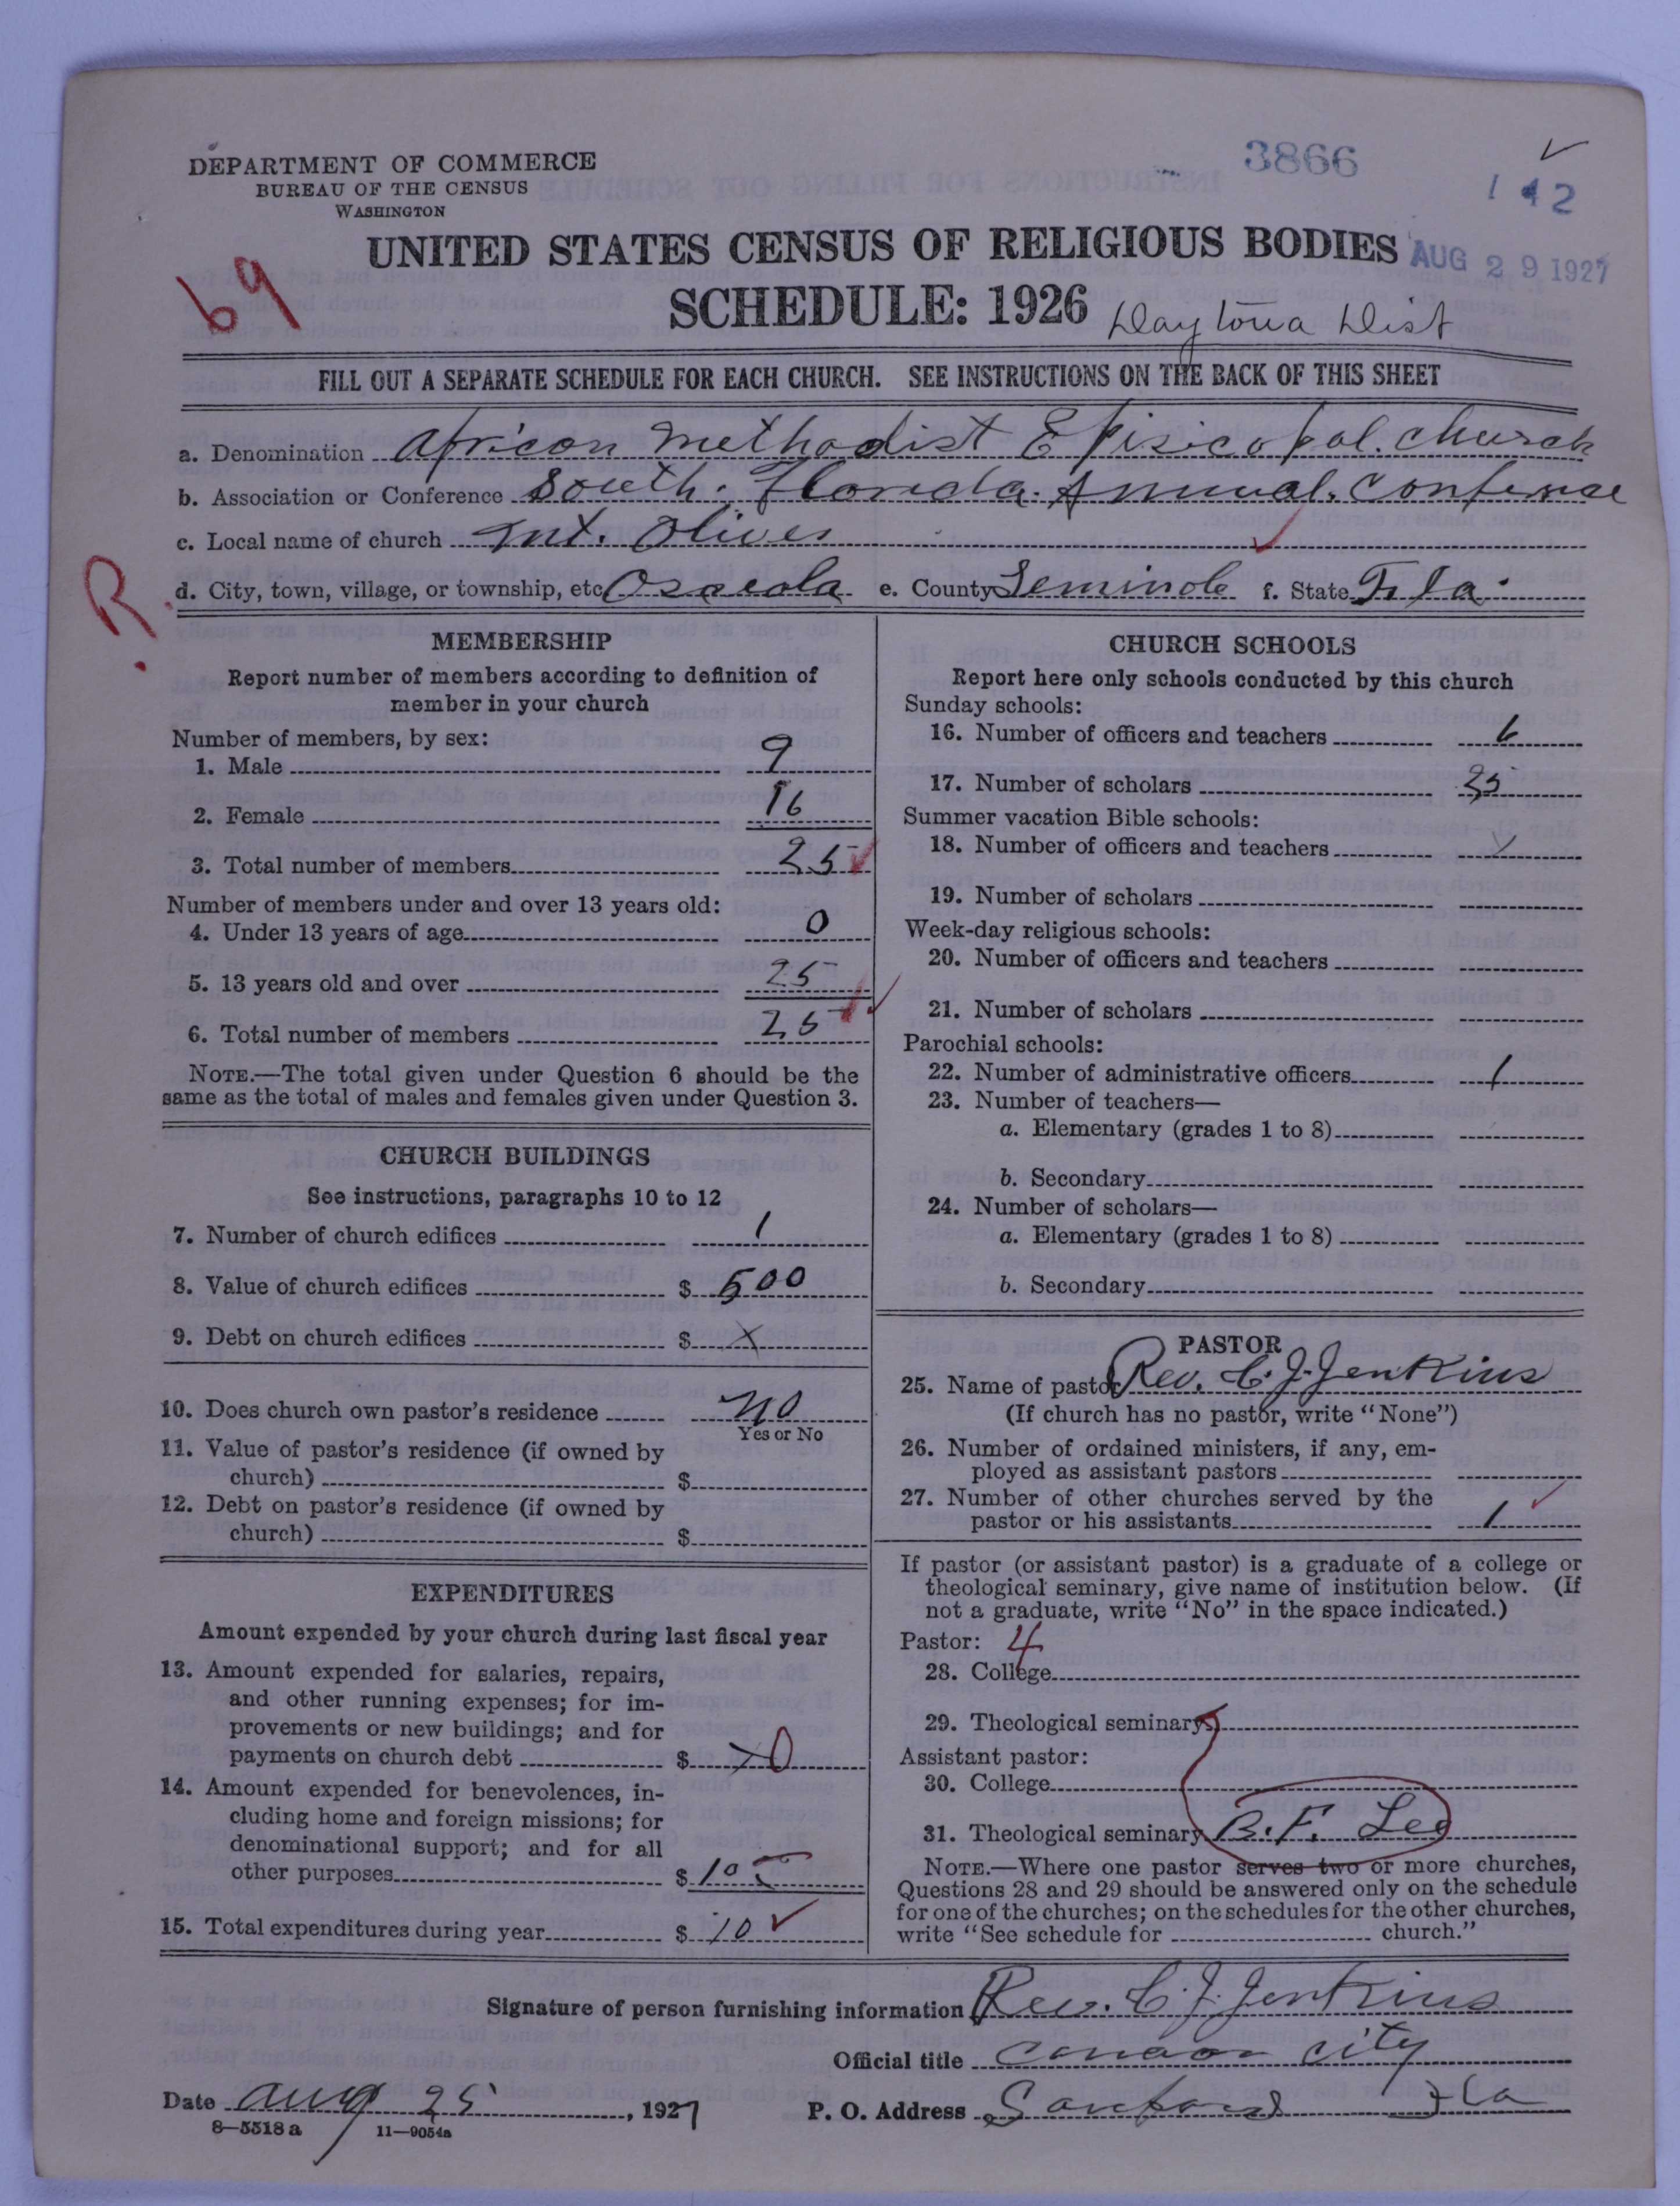 DEPARTMENT OF COMMERCE
BUREAU OF THE CENSUS
WASHINGTON
3866
142
UNITED STATES CENSUS OF RELIGIOUS BODIES
AUG 29 1927
69
SCHEDULE: 1926 Daytona Dist
FILL OUT A SEPARATE SCHEDULE FOR EACH CHURCH. SEE INSTRUCTIONS ON THE BACK OF THIS SHEET
a. Denomination African Methodist Episicopal. church
b. Association or Conference South. Florida. Annual. Confernce
c. Local name of church Mt. Olives
R.
d. City, town, village, or township, etc. Osceola e. County Seminole f. State Fla.
MEMBERSHIP
Report number of members according to definition of
member in your church
Number of members, by sex:
1. Male 9
2. Female 16
3. Total number of members 25
Number of members under and over 13 years old:
4. Under 13 years of age 0
5. 13 years old and over 25
6. Total number of members 25
NOTE.—The total given under Question 6 should be the
same as the total of males and females given under Question 3.
CHURCH BUILDINGS
See instructions, paragraphs 10 to 12
7. Number of church edifices 1
8. Value of church edifices $ 500
9. Debt on church edifices $ X
10. Does church own pastor's residence No
Yes or No
11. Value of pastor's residence (if owned by
church) $
12. Debt on pastor's residence (if owned by
church) $
EXPENDITURES
Amount expended by your church during last fiscal year
13. Amount expended for salaries, repairs,
and other running expenses; for im-
provements or new buildings; and for
payments on church debt $
14. Amount expended for benevolences, in-
cluding home and foreign missions; for
denominational support; and for all
other purposes $ 10
15. Total expenditures during year $ 10
CHURCH SCHOOLS
Report here only schools conducted by this church
Sunday schools:
16. Number of officers and teachers 6
17. Number of scholars 25
Summer vacation Bible schools:
18. Number of officers and teachers
19. Number of scholars
Week-day religious schools:
20. Number of officers and teachers
21. Number of scholars
Parochial schools:
22. Number of administrative officers 1
23. Number of teachers—
a. Elementary (grades 1 to 8)
b. Secondary
24. Number of scholars—
a. Elementary (grades 1 to 8)
b. Secondary
PASTOR
25. Name of pastor Rev. C. J. Jenkins
(If church has no pastor, write "None")
26. Number of ordained ministers, if any, em-
ployed as assistant pastors
27. Number of other churches served by the
pastor or his assistants 1
If pastor (or assistant pastor) is a graduate of a college or
theological seminary, give name of institution below. (If
not a graduate, write "No" in the space indicated.)
Pastor: 4
28. College
29. Theological seminary
Assistant pastor:
30. College
31. Theological seminary B. F. Lee
NOTE.—Where one pastor serves two or more churches,
Questions 28 and 29 should be answered only on the schedule
for one of the churches; on the schedules for the other churches,
write "See schedule for church."
Signature of person furnishing information Rev. C. J. Jenkins
Official title canaan city
Date Aug 25, 1927 P. O. Address Sanford Fla
8—5518a 11—9054a